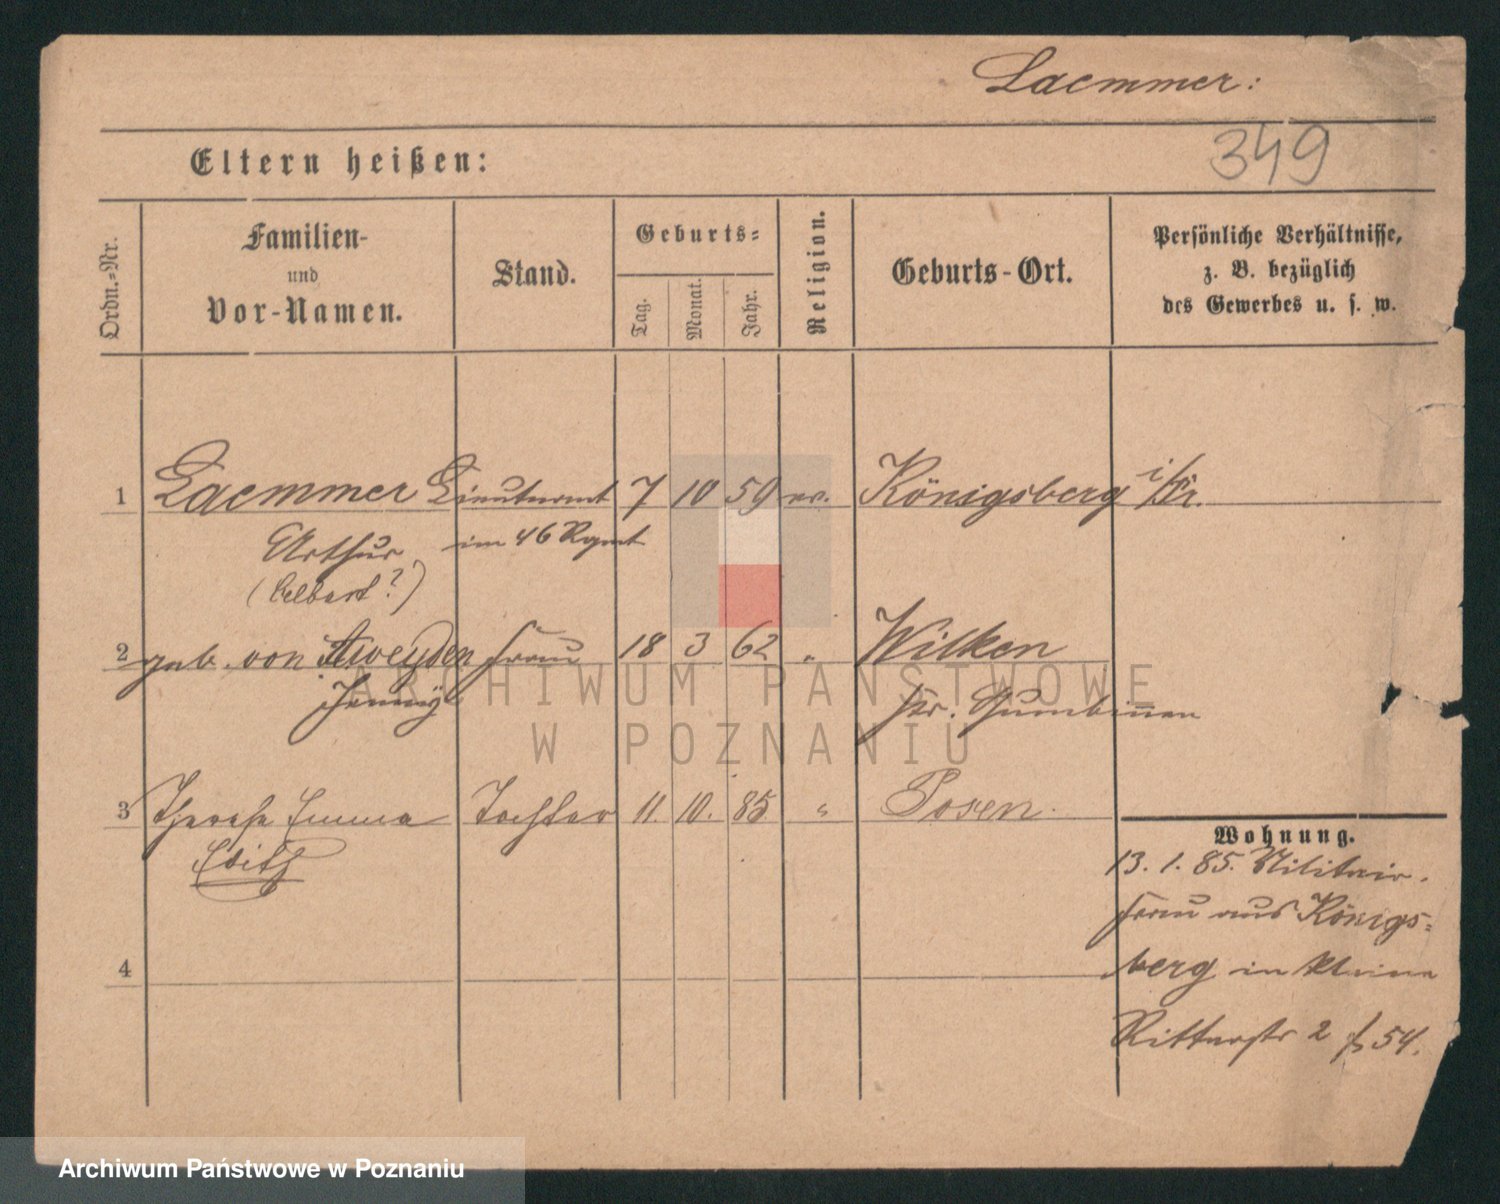 Laemmer:
349
Eltern heißen:
Ordn.-Nr.
Familien-
und
Vor-Namen.
Stand.
Geburts-
Tag.
Monat.
Jahr.
Religion.
Geburts-Ort.
Persönliche Verhältnisse,
z. B. bezüglich
des Gewerbes u. s. w.
1 Laemmer Lieutenant 7 10 59 ev. Königsberg i/Pr.
Arthur im 46 Rgmt
(Elbert?)
2 geb. von Aweyden Frau 18 3 62 " Wilken
Jenny Kr. Gumbinnen
3 Therese Emma Tochter 11. 10. 85 " Posen.
Edith
Wohnung.
13. 1. 85. Militair.
Frau aus Königs-
4 berg in kleine
Ritterstr 2 f 54.
ARCHIWUM PAŃSTWOWE
W POZNANIU
Archiwum Państwowe w Poznaniu